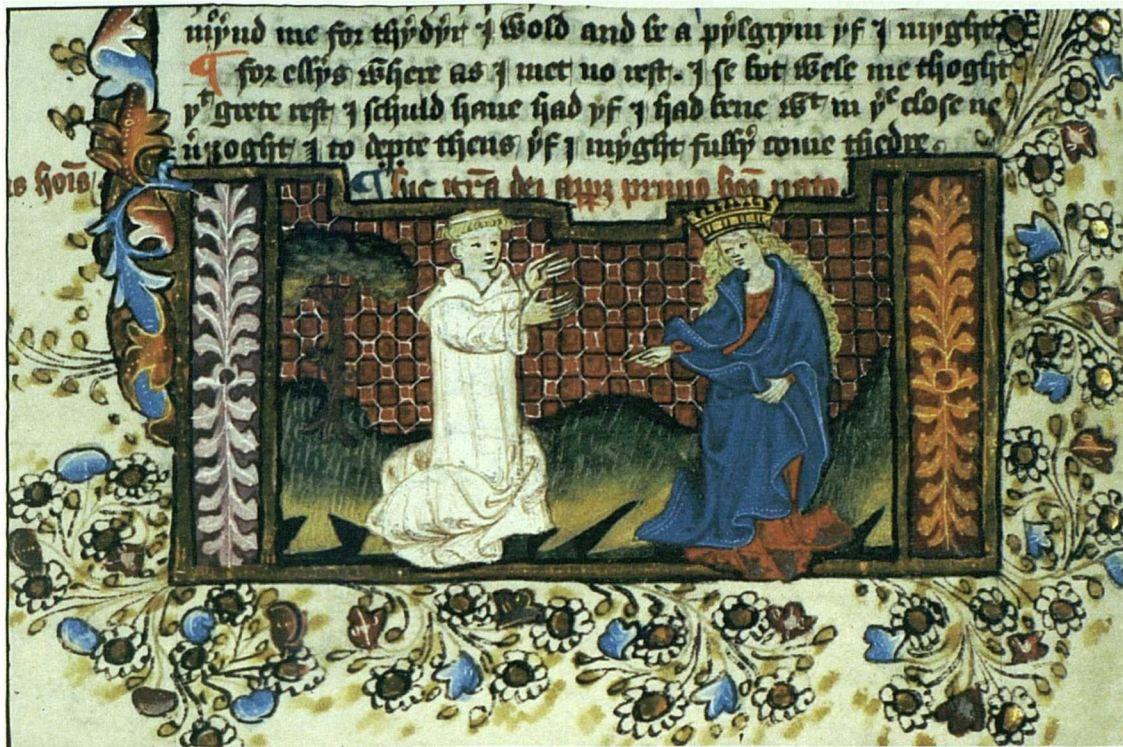 mynd me for thydyr I wold and be a pylgrym yf I myght
¶ for ellys where as I met no rest. I se bot wele me thoght
yᵗ grete rest I schuld haue had yf I had bene wᵗ in yᵉ close ne
I to depte thens yf I myght fully come thedre.
hoīs
¶ huc gr̄a dei app primo hoī nato